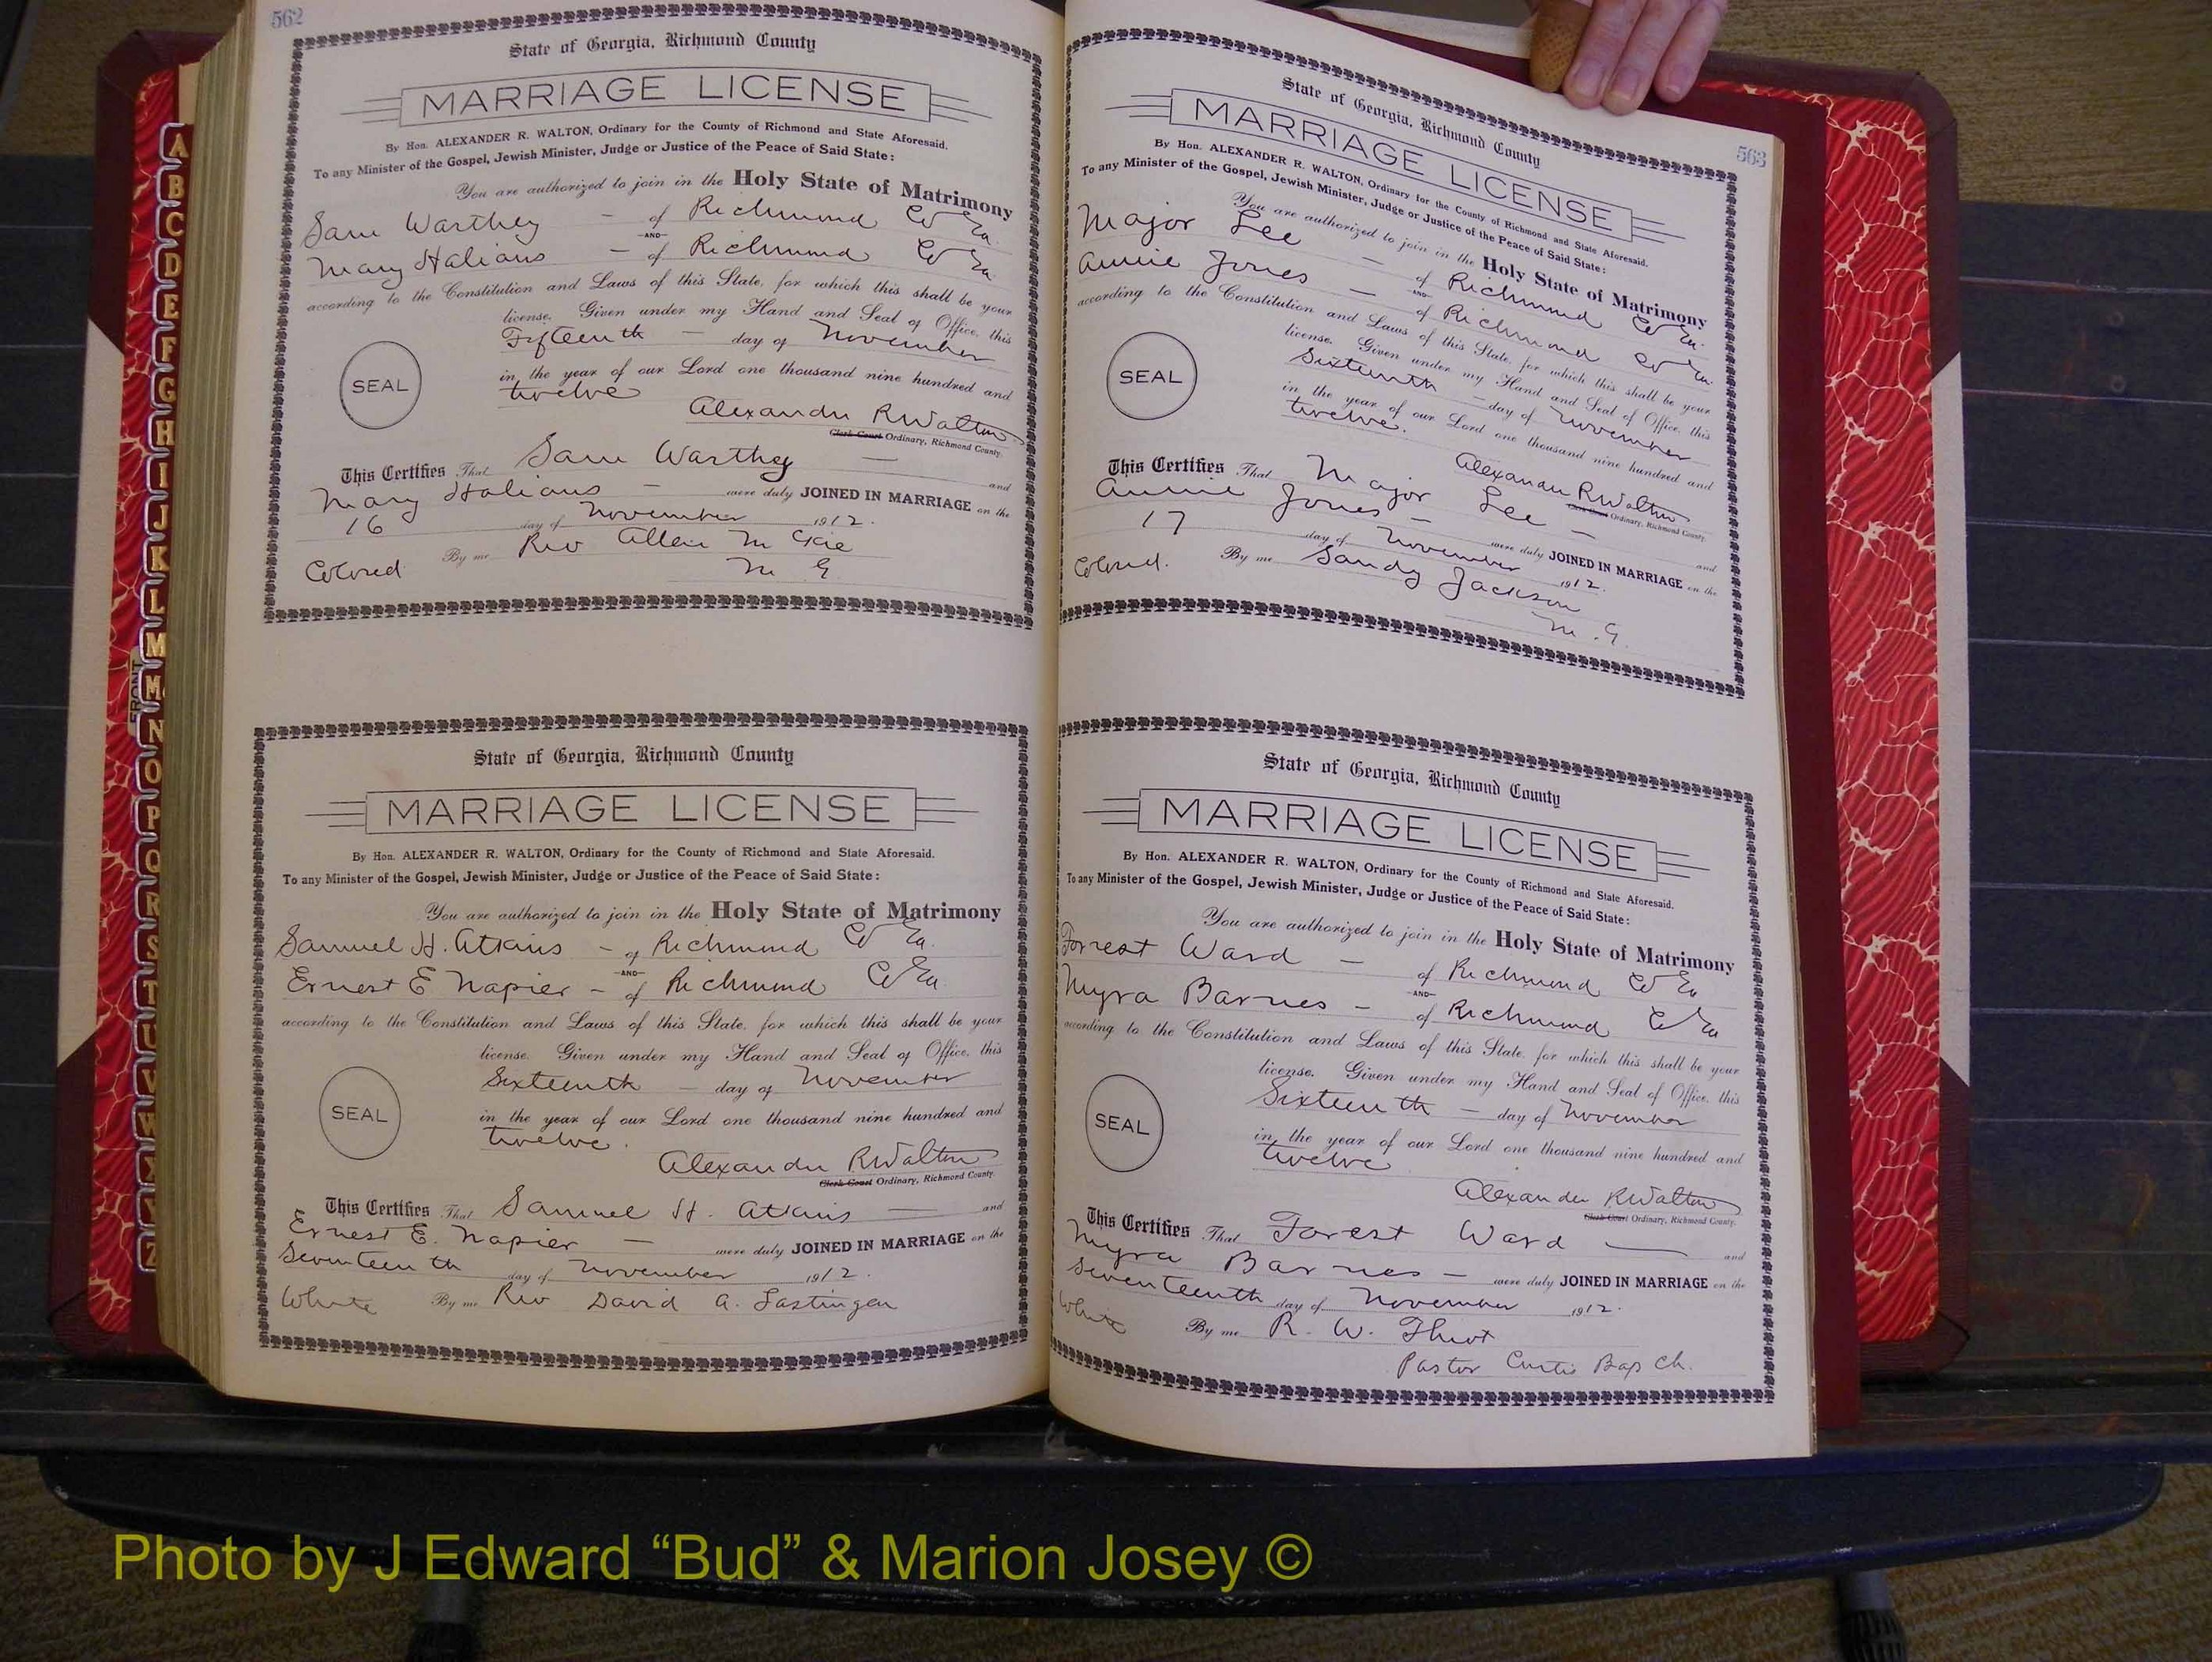 562
State of Georgia, Richmond County
MARRIAGE LICENSE
By Hon. ALEXANDER R. WALTON, Ordinary for the County of Richmond and State Aforesaid.
To any Minister of the Gospel, Jewish Minister, Judge or Justice of the Peace of Said State:
You are authorized to join in the Holy State of Matrimony
Sam Warthey - of Richmond Co Ga.
AND
Mary - of Richmond Co Ga
according to the Constitution and Laws of this State, for which this shall be your
license. Given under my Hand and Seal of Office, this
Fifteenth - day of November
SEAL
in the year of our Lord one thousand nine hundred and
twelve
Alexander R Walton
Clerk Court Ordinary, Richmond County.
This Certifies That Sam Warthey - and
Mary - were duly JOINED IN MARRIAGE on the
16 day of November 1912.
Colored By me Rev Allen McKie
M G
State of Georgia, Richmond County
MARRIAGE LICENSE
By Hon. ALEXANDER R. WALTON, Ordinary for the County of Richmond and State Aforesaid.
To any Minister of the Gospel, Jewish Minister, Judge or Justice of the Peace of Said State:
You are authorized to join in the Holy State of Matrimony
Samuel H. Atkins - of Richmond Co Ga.
AND
Ernest E Napier - of Richmond Co Ga
according to the Constitution and Laws of this State, for which this shall be your
license. Given under my Hand and Seal of Office, this
Sixteenth - day of November
SEAL
in the year of our Lord one thousand nine hundred and
twelve.
Alexander R Walton
Clerk Court Ordinary, Richmond County.
This Certifies That Samuel H. Atkins - and
Ernest E. Napier - were duly JOINED IN MARRIAGE on the
Seventeenth day of November 1912.
White By me Rev David A.
563
State of Georgia, Richmond County
MARRIAGE LICENSE
By Hon. ALEXANDER R. WALTON, Ordinary for the County of Richmond and State Aforesaid.
To any Minister of the Gospel, Jewish Minister, Judge or Justice of the Peace of Said State:
You are authorized to join in the Holy State of Matrimony
Major Lee - of Richmond Co Ga.
AND
Annie Jones - of Richmond Co Ga.
according to the Constitution and Laws of this State, for which this shall be your
license. Given under my Hand and Seal of Office, this
Sixteenth - day of November
SEAL
in the year of our Lord one thousand nine hundred and
twelve.
Alexander R Walton
Clerk Court Ordinary, Richmond County.
This Certifies That Major Lee - and
Annie Jones - were duly JOINED IN MARRIAGE on the
17 day of November 1912.
Colored. By me Sandy Jackson
M. G.
State of Georgia, Richmond County
MARRIAGE LICENSE
By Hon. ALEXANDER R. WALTON, Ordinary for the County of Richmond and State Aforesaid.
To any Minister of the Gospel, Jewish Minister, Judge or Justice of the Peace of Said State:
You are authorized to join in the Holy State of Matrimony
Forrest Ward - of Richmond Co Ga
AND
Myra Barnes - of Richmond Co Ga
according to the Constitution and Laws of this State, for which this shall be your
license. Given under my Hand and Seal of Office, this
Sixteenth - day of November
SEAL
in the year of our Lord one thousand nine hundred and
twelve
Alexander R Walton
Clerk Court Ordinary, Richmond County.
This Certifies That Forest Ward - and
Myra Barnes - were duly JOINED IN MARRIAGE on the
Seventeenth day of November 1912.
White By me R. W.
Pastor Curtis Bap Ch.
A
B
C
D
E
F
G
H
I
J
K
L
M
Mc
N
O
P
Q
R
S
T
U
V
W
X
Y
Z
FRONT
Photo by J Edward “Bud” & Marion Josey ©